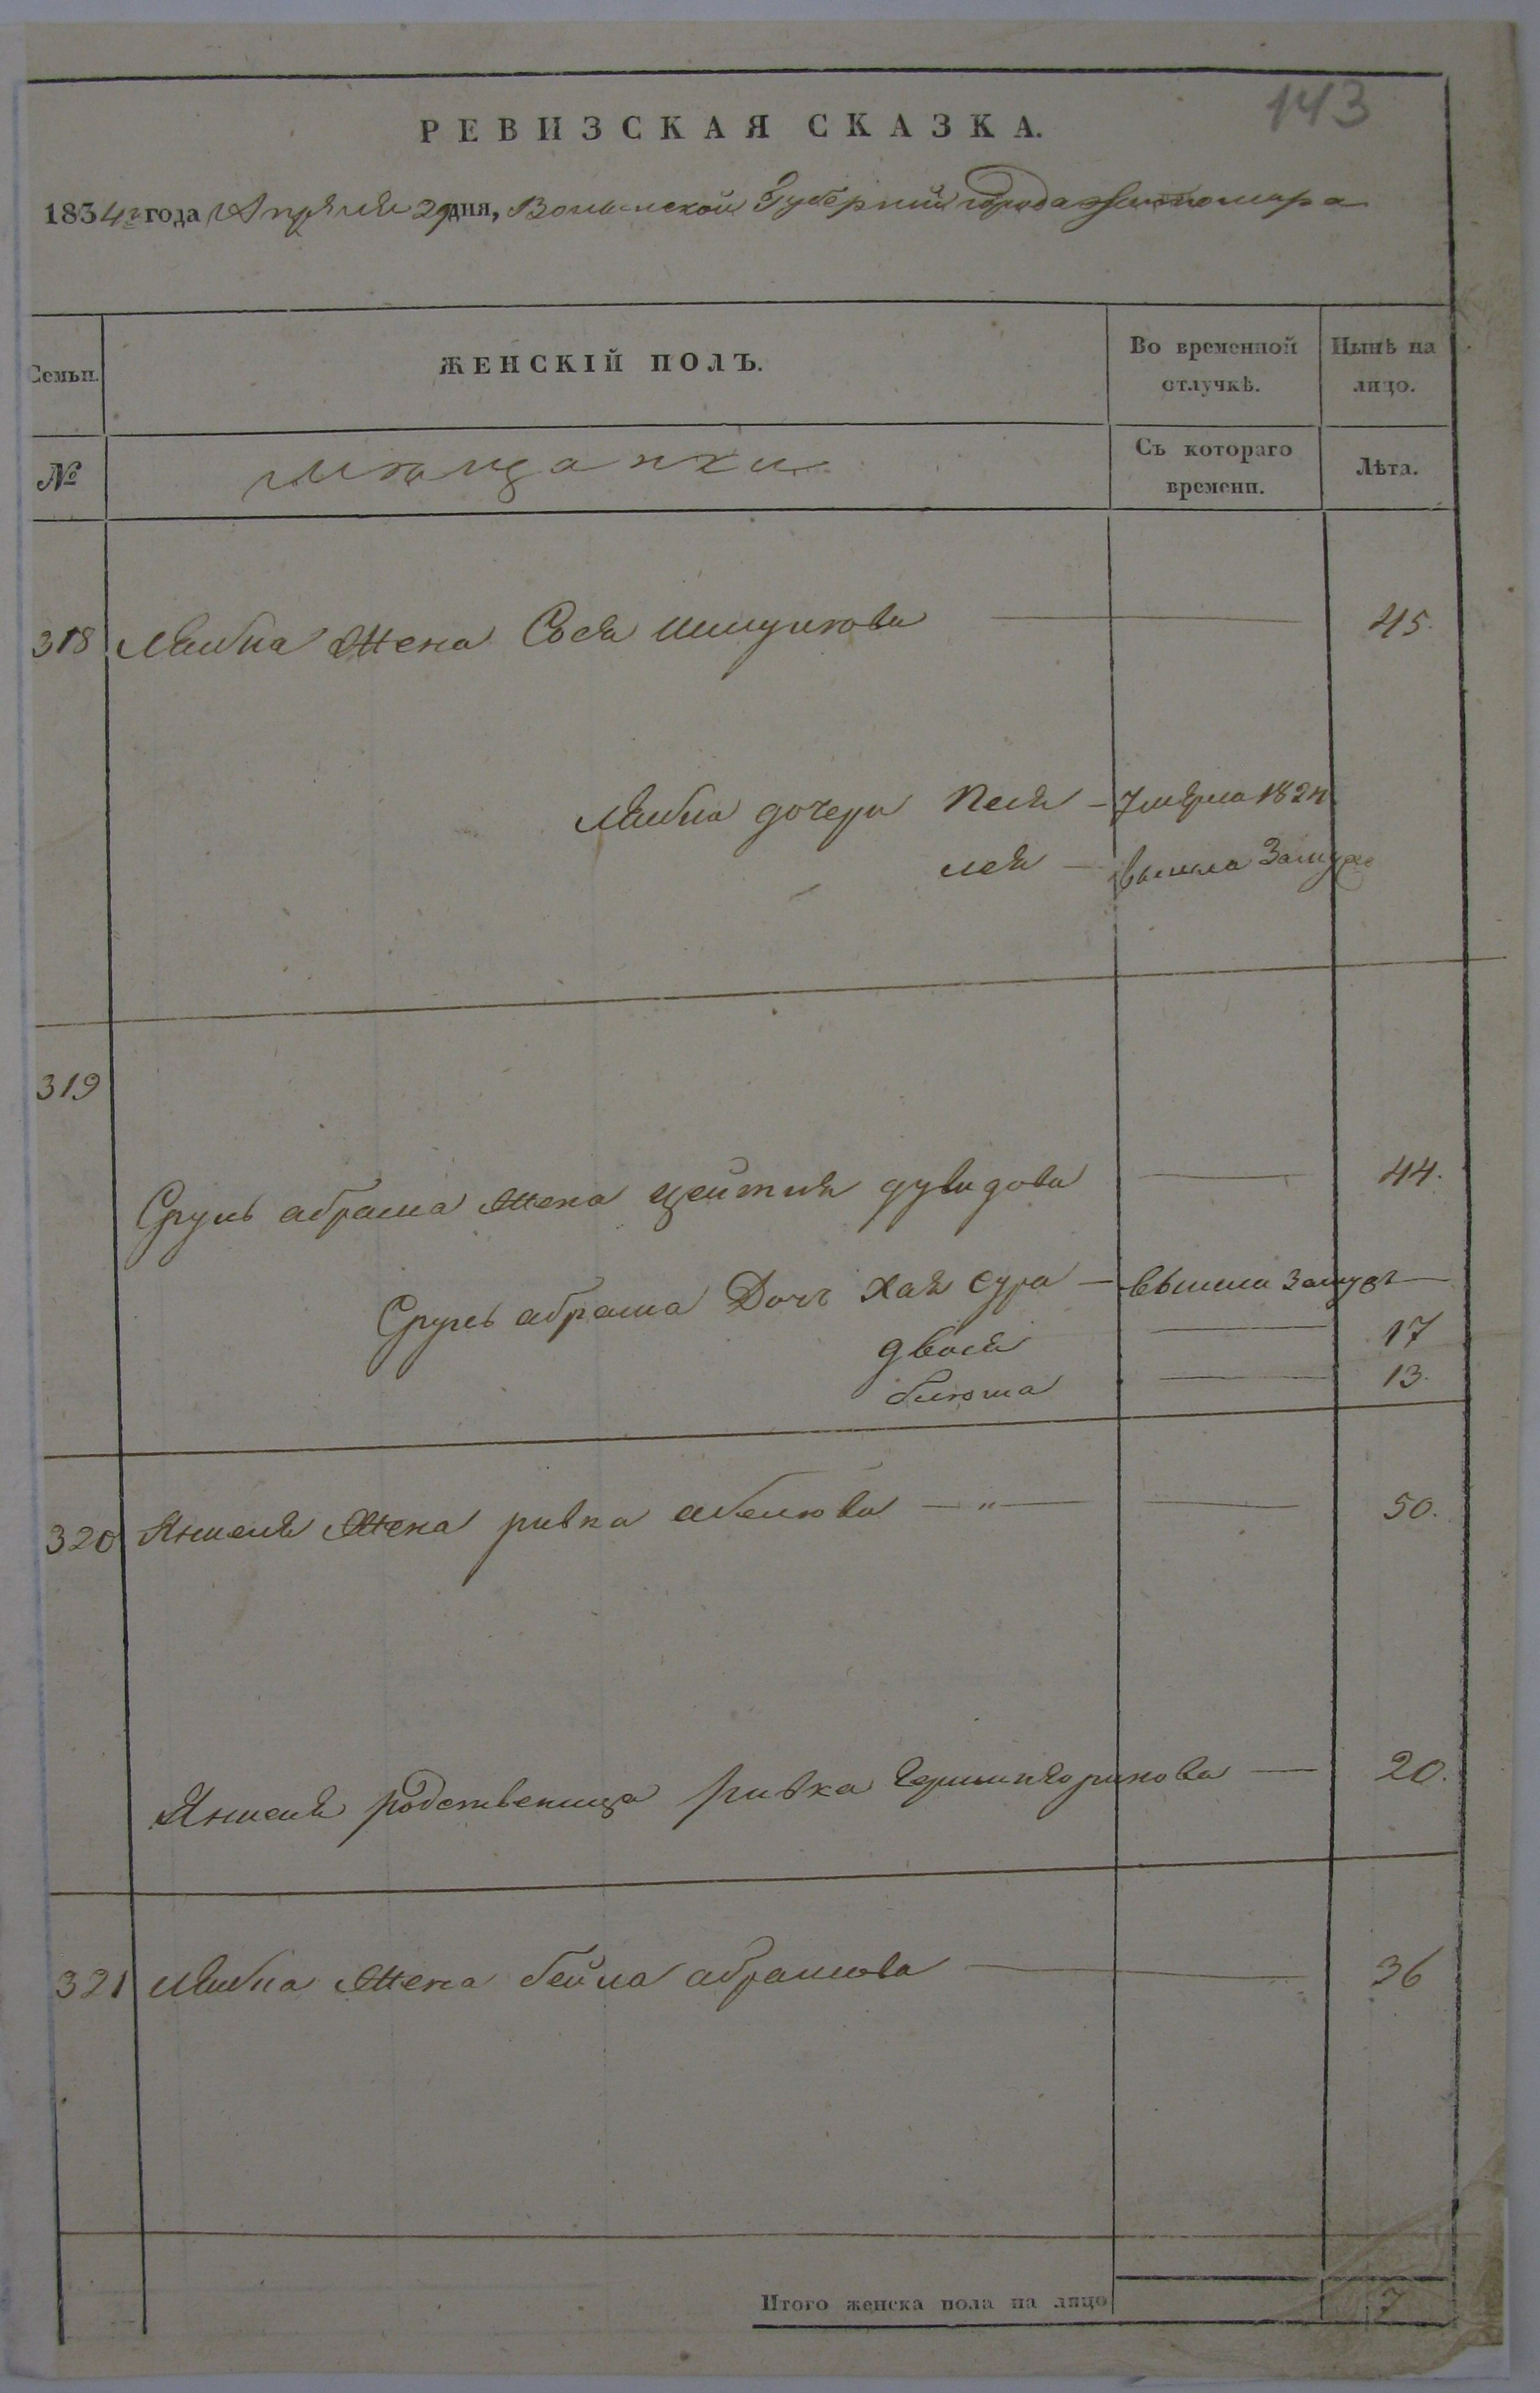 143
РЕВИЗСКАЯ СКАЗКА.
1834го года Апреля 29 дня, Волынской Губернии города Житомира
Семьи. ЖЕНСКІЙ ПОЛЪ. Во временной отлучкѣ. Нынѣ на лицо.
№ мѣщанки Съ котораго времени. Лѣта.
318 Лейбы Жена Сося 45.
Лейбы дочери Песя — умерла 1824
лея — вышла Замужъ
319
Сруль абрама Жена цейтля дувидова 44.
Сруль абрама Дочь Хая сура — вышла замужъ
двося 17
блюма 13.
320 Яншеля Жена ривка абелюва — " — 50.
Яншеля родственница ривка — 20.
321 Лейбы Жена бейла абрамова 36
Итого женска пола на лицо 7